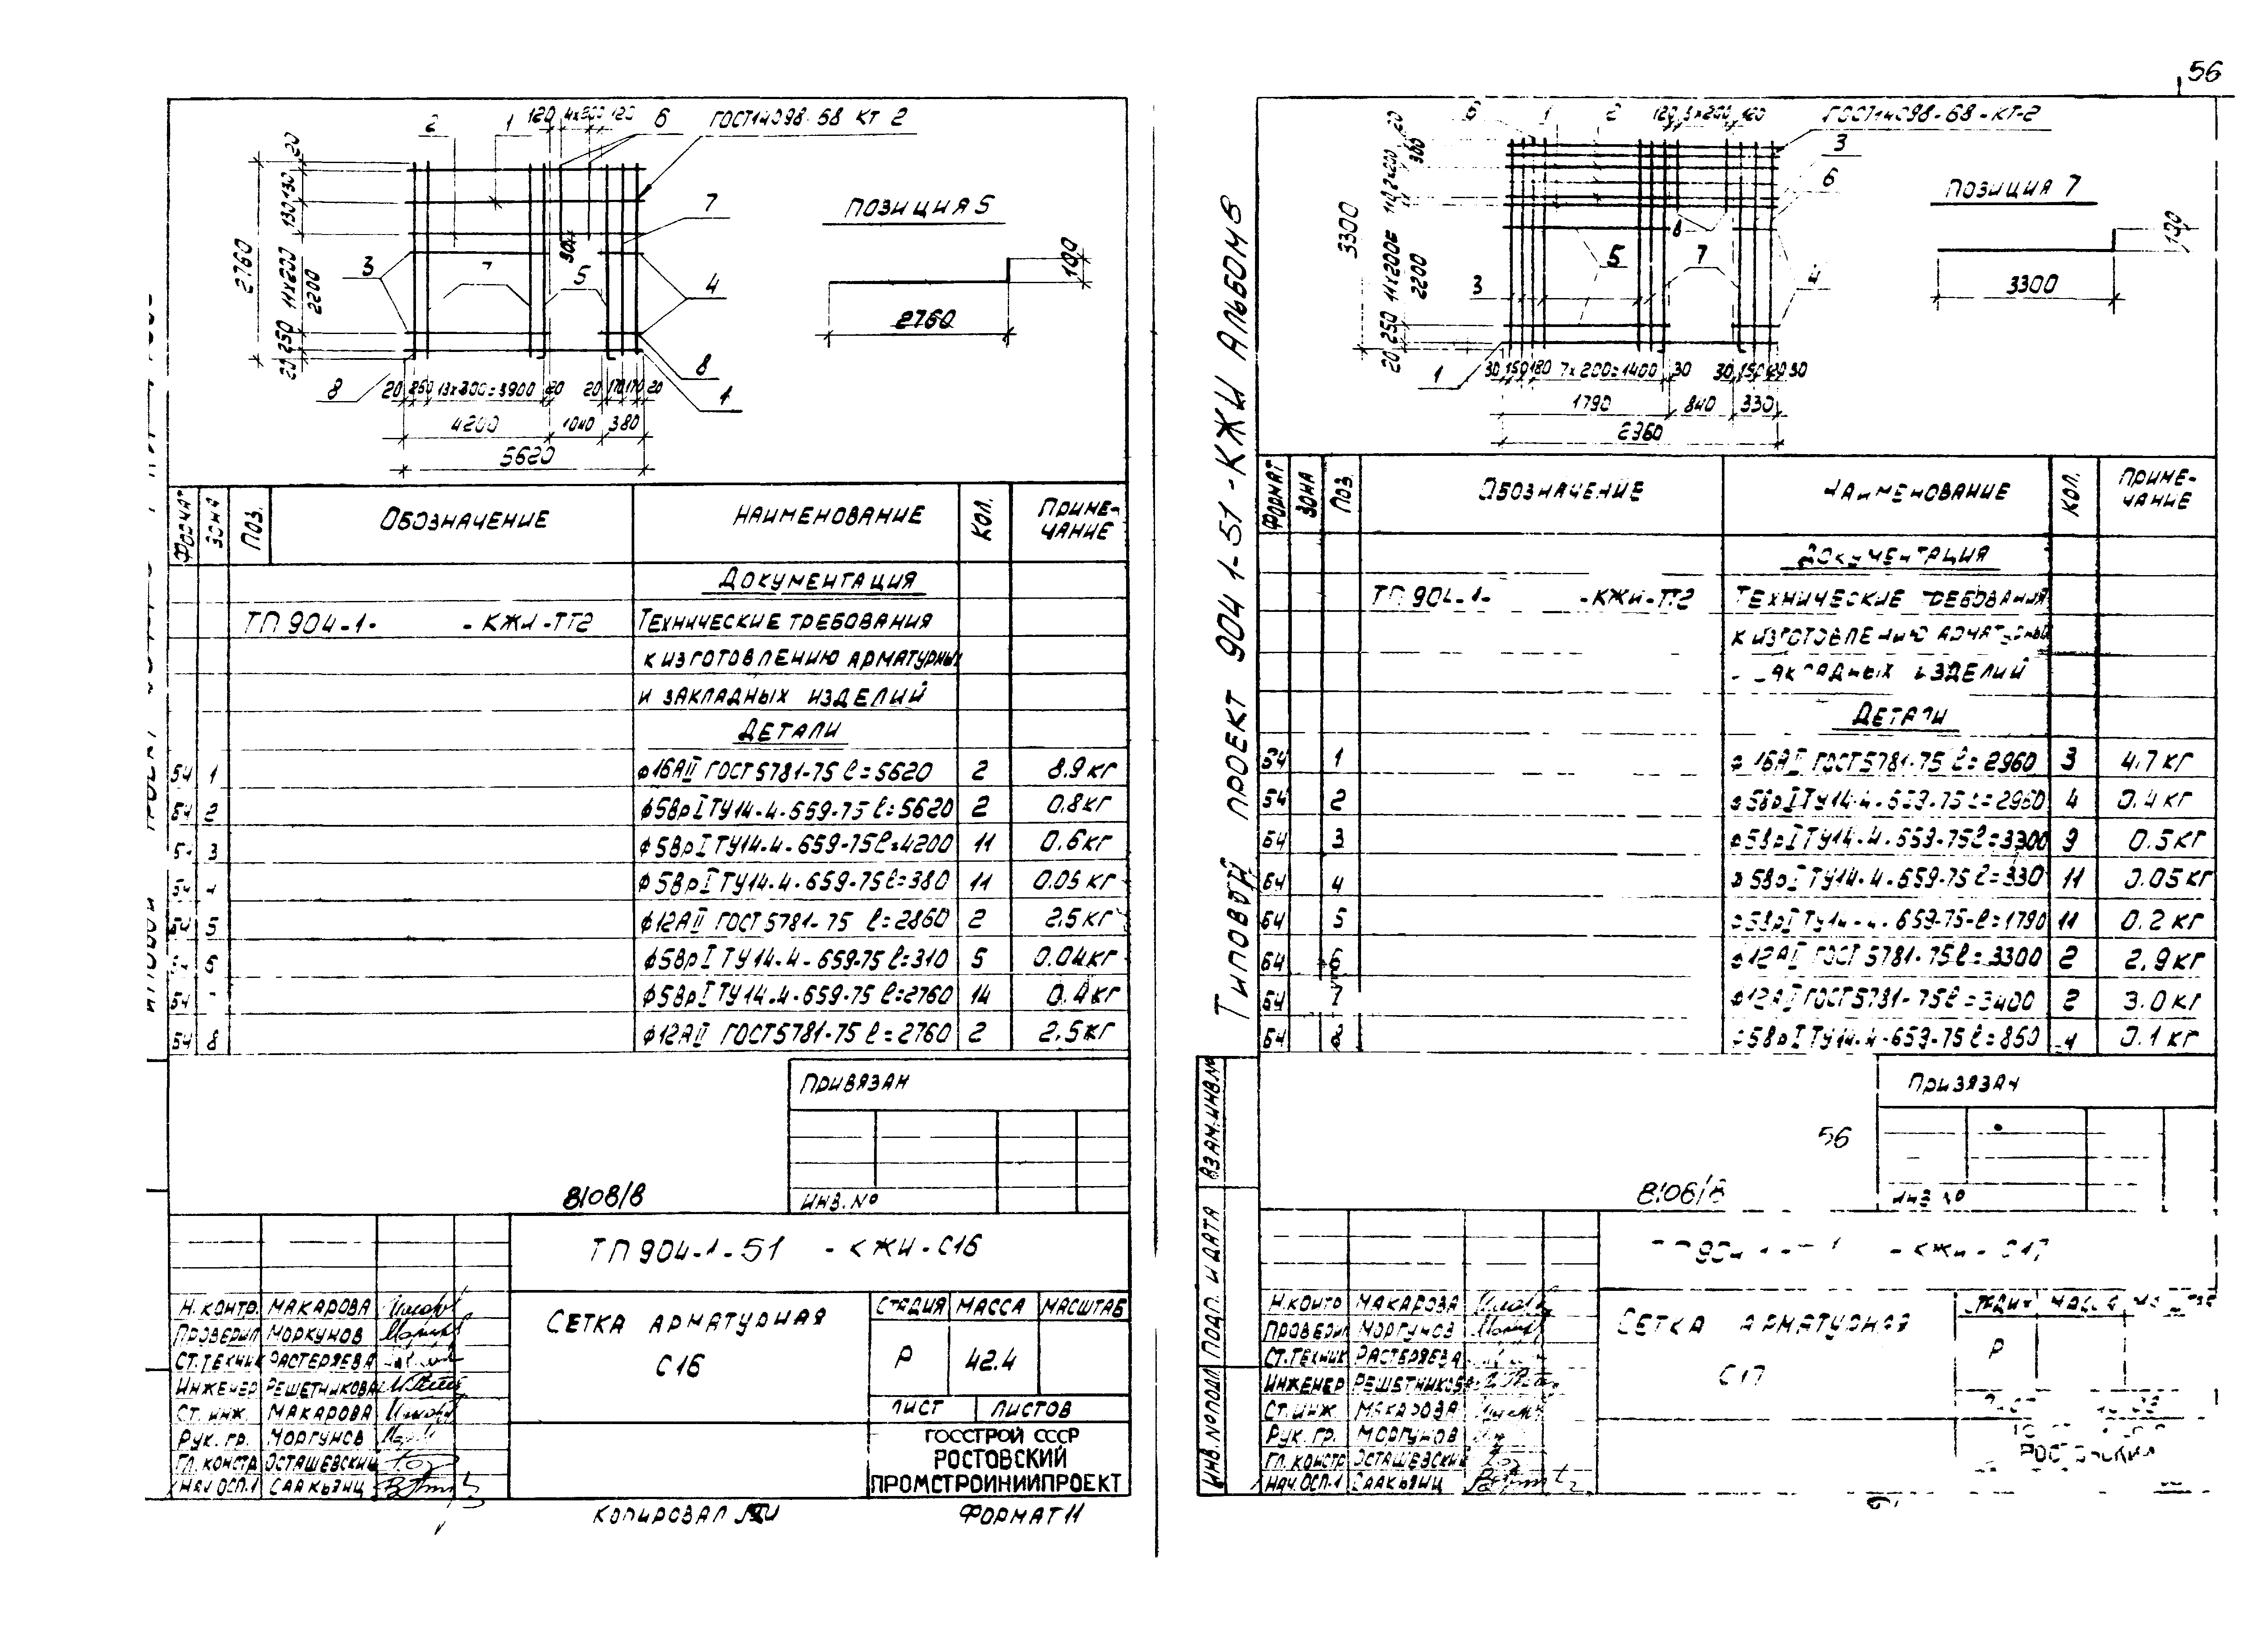 56
2
1
120 4х200 120
6
ГОСТ14098-68 КТ 2
7
ПОЗИЦИЯ 5
2760
20
130 130
11х200
2200
250
20
3
5
4
8
1
8
100
2760
20 250 13х300=3900 20
20 170 170 20
4200
1040
380
5620
ФОРМАТ
ЗОНА
ПОЗ.
ОБОЗНАЧЕНИЕ
НАИМЕНОВАНИЕ
КОЛ.
ПРИМЕ-
ЧАНИЕ
ДОКУМЕНТАЦИЯ
ТП 904-1- -КЖИ-ТТ2 ТЕХНИЧЕСКИЕ ТРЕБОВАНИЯ
К ИЗГОТОВЛЕНИЮ АРМАТУРНЫХ
И ЗАКЛАДНЫХ ИЗДЕЛИЙ
ДЕТАЛИ
БЧ 1 ф16АII ГОСТ 5781-75 ℓ=5620 2 8.9 кг
БЧ 2 ф5ВрI ТУ14-4-659-75 ℓ=5620 2 0.8кг
3 ф5ВрI ТУ14-4-659-75 ℓ=4200 11 0.6кг
БЧ ф5ВрI ТУ14-4-659-75 ℓ=380 11 0.05 кг
БЧ 5 ф12АII ГОСТ 5781-75 ℓ=2860 2 2.5 кг
ф5ВрI ТУ14-4-659-75 ℓ=310 5 0.04кг
БЧ ф5ВрI ТУ14-4-659-75 ℓ=2760 14 0.4кг
БЧ 8 ф12АII ГОСТ5781-75 ℓ=2760 2 2.5кг
ПРИВЯЗАН
ИНВ.№
8108/8
ТП 904-1-51 -КЖИ-С16
СЕТКА АРМАТУРНАЯ
С16
СТАДИЯ МАССА МАСШТАБ
Р 42.4
ЛИСТ ЛИСТОВ
ГОССТРОЙ СССР
РОСТОВСКИЙ
ПРОМСТРОЙНИИПРОЕКТ
Н.КОНТР. МАКАРОВА
ПРОВЕРИЛ МОРГУНОВ
СТ.ТЕХНИК РАСТЕРЯЕВА
ИНЖЕНЕР РЕШЕТНИКОВА
СТ. ИНЖ. МАКАРОВА
РУК. ГР. МОРГУНОВ
ГЛ.КОНСТР ОСТАШЕВСКИЙ
НАЧ ОСП-1 СААКЬЯНЦ
КОПИРОВАЛ
ФОРМАТ 11
ТИПОВОЙ ПРОЕКТ 904 1-51-КЖИ АЛЬБОМ 8
6
1
2
120 5х200 120
ГОСТ14098-68-КТ-2
3
6
ПОЗИЦИЯ 7
3300
20
300
11х200=
2200
250
20
8
5
7
3
4
1
100
3300
30 150 180 7х200=1400 30
30 150 30
1790
840
330
2960
ФОРМАТ
ЗОНА
ПОЗ.
ОБОЗНАЧЕНИЕ
НАИМЕНОВАНИЕ
КОЛ.
ПРИМЕ-
ЧАНИЕ
ДОКУМЕНТАЦИЯ
ТП 904-1- -КЖИ-ТТ2 ТЕХНИЧЕСКИЕ ТРЕБОВАНИЯ
К ИЗГОТОВЛЕНИЮ АРМАТУРНЫХ
ЗАКЛАДНЫХ ИЗДЕЛИЙ
ДЕТАЛИ
БЧ 1 ф16АII ГОСТ 5781-75 ℓ=2960 3 4.7 кг
БЧ 2 ф5ВрI ТУ14-4-659-75 ℓ=2960 4 0.4 кг
БЧ 3 ф5ВрI ТУ14-4-659-75 ℓ=3300 9 0.5 кг
БЧ 4 ф5ВрI ТУ14-4-659-75 ℓ=330 11 0.05 кг
БЧ 5 ф5ВрI ТУ14-4-659-75 ℓ=1790 11 0.2 кг
БЧ 6 ф12АII ГОСТ 5781-75 ℓ=3300 2 2.9 кг
БЧ 7 ф12АII ГОСТ 5781-75 ℓ=3400 2 3.0 кг
БЧ 8 ф5ВрI ТУ14-4-659-75 ℓ=850 4 0.1 кг
ПРИВЯЗАН
56
8106/8
-КЖИ-С17
СЕТКА АРМАТУРНАЯ
С17
Р
Н.КОНТР МАКАРОВА
ПРОВЕРИЛ МОРГУНОВ
СТ.ТЕХНИК РАСТЕРЯЕВА
ИНЖЕНЕР РЕШЕТНИКОВА
СТ.ИНЖ. МАКАРОВА
РУК. ГР. МОРГУНОВ
ГЛ.КОНСТР ОСТАШЕВСКИЙ
НАЧ.ОСП-1 СААКЬЯНЦ
ВЗАМ.ИНВ.№
ПОДП. И ДАТА
ИНВ.№ПОДЛ